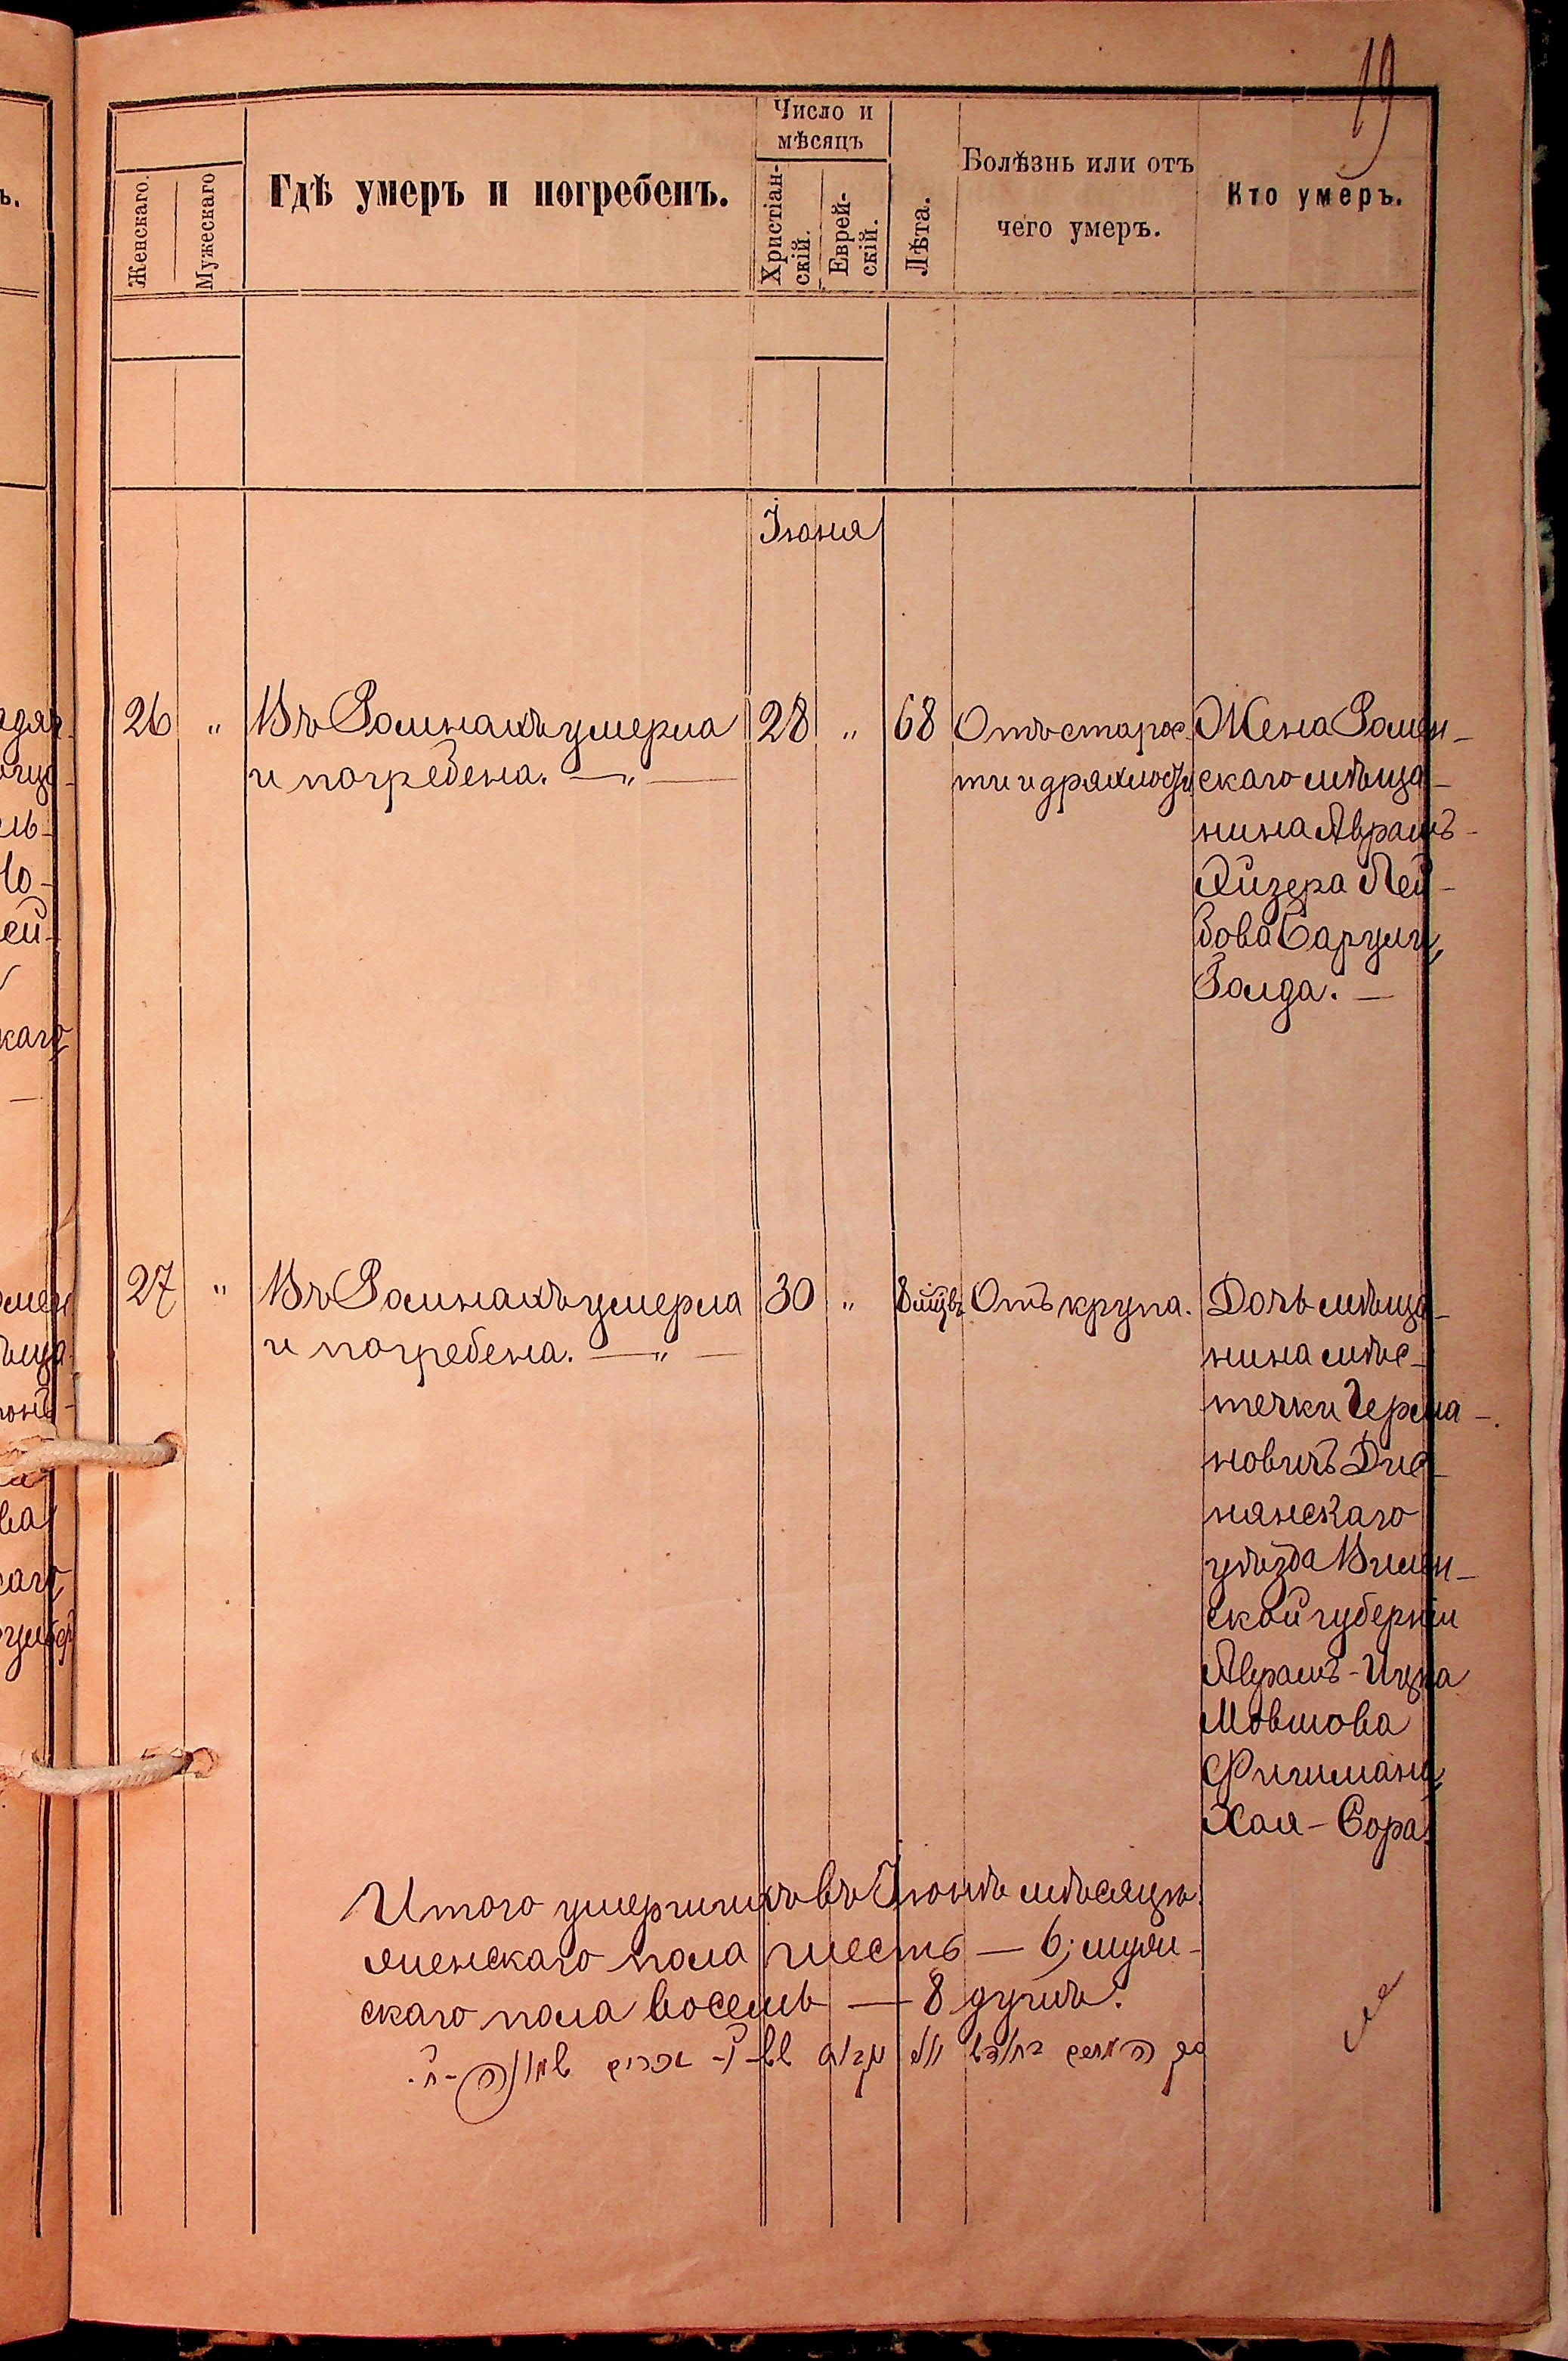 19
Женскаго.
Мужескаго
Гдѣ умеръ и погребенъ.
Число и
мѣсяцъ
Христіан-
скій.
Еврей-
скій.
Лѣта.
Болѣзнь или отъ
чего умеръ.
Кто умеръ.
Іюня
26 " Въ Ромнахъ умерла 28 " 68 Отъ старос- Жена Ромен-
и погребена. — " — ти и дряхлости скаго мѣща-
нина Аврамъ-
Айзера Лей-
бова Сарули,
Голда. —
27 " Въ Ромнахъ умерла 30 " 8 мцвъ Отъ крупа. Дочь мѣща-
и погребена. — " — нина мѣс-
течки Герма-
новичъ Дис-
нянскаго
уѣзда Вилен-
ской губерніи
Аврамъ-Ицка
Мовшова
Фигимана
Хая-Сора.
Итого умершихъ въ Іюнѣ мѣсяцѣ
женскаго пола шесть — 6; муж-
скаго пола восемь — 8 душъ.